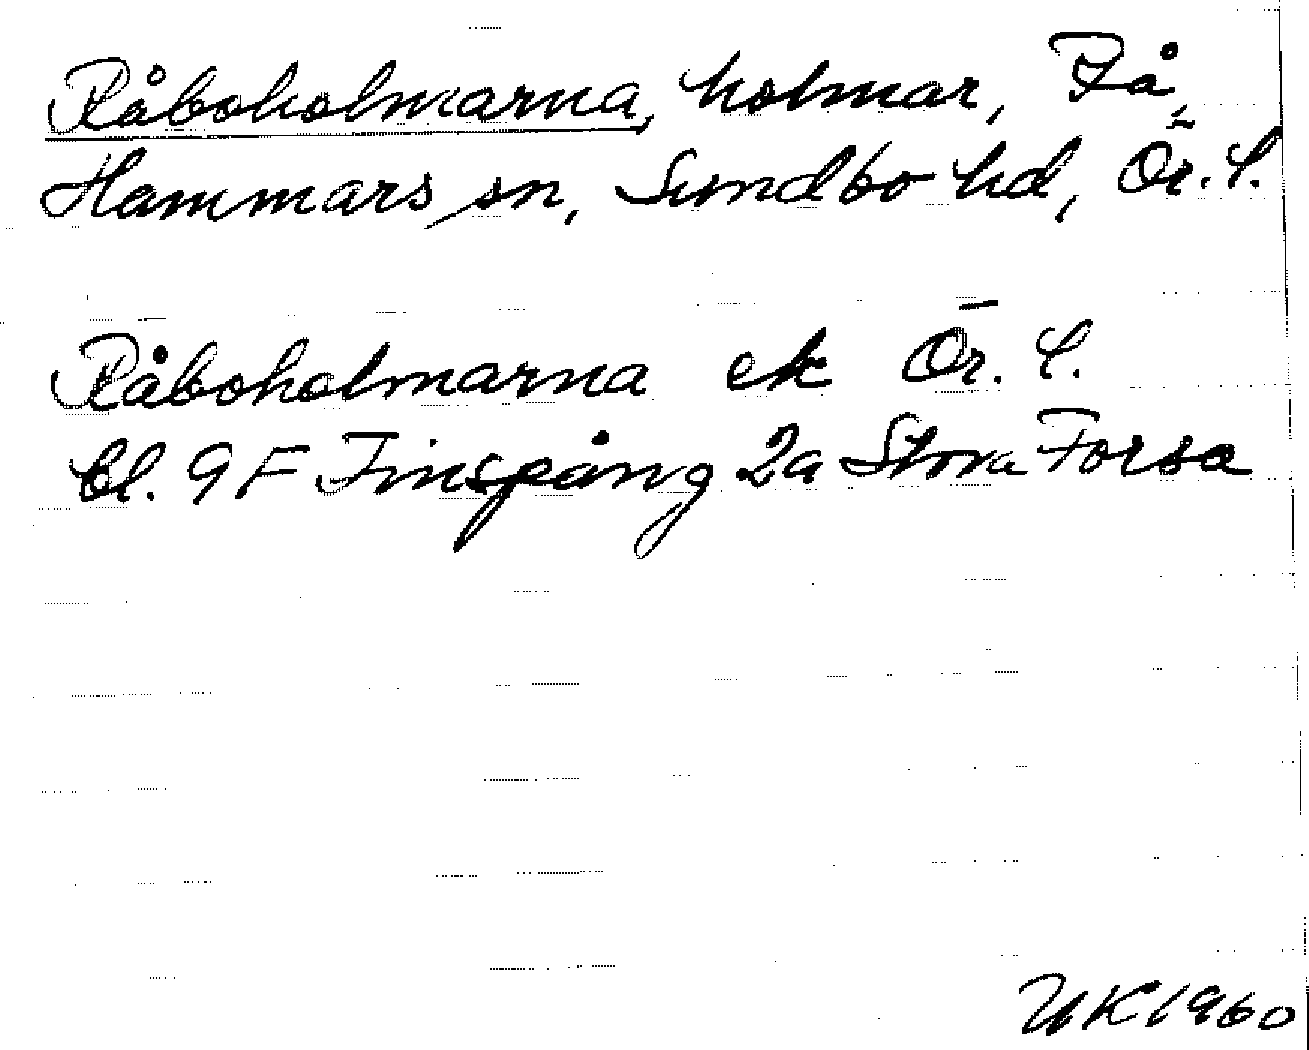 Råboholmarna, holmar, Rå,
Hammars sn, Sundbo hd, Ör. l.
Råboholmarna ek Ör. l.
bl. 9F Finspång 2a Stora Forsa
UK 1960